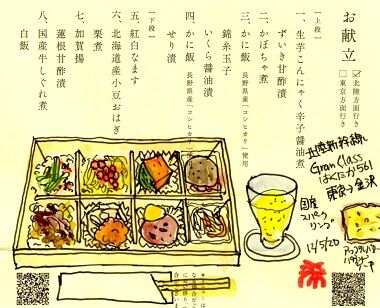 お献立
☑北陸方面行き
□東京方面行き
[上段]
一、生芋こんにゃく辛子醤油煮
ずいき甘酢漬
二、かぼちゃ煮
三、かに飯 長野県産「コシヒカリ」使用
錦糸玉子
いくら醤油漬
四、かに飯 長野県産「コシヒカリ」使用
せり漬
[下段]
五、紅白なます
六、北海道産小豆おはぎ
栗煮
七、加賀揚
蓮根甘酢漬
八、国産牛しぐれ煮
白飯
北陸新幹線
Gran Class
はくたか561
東京→金沢
国産
スパーク
リング
12/5/20